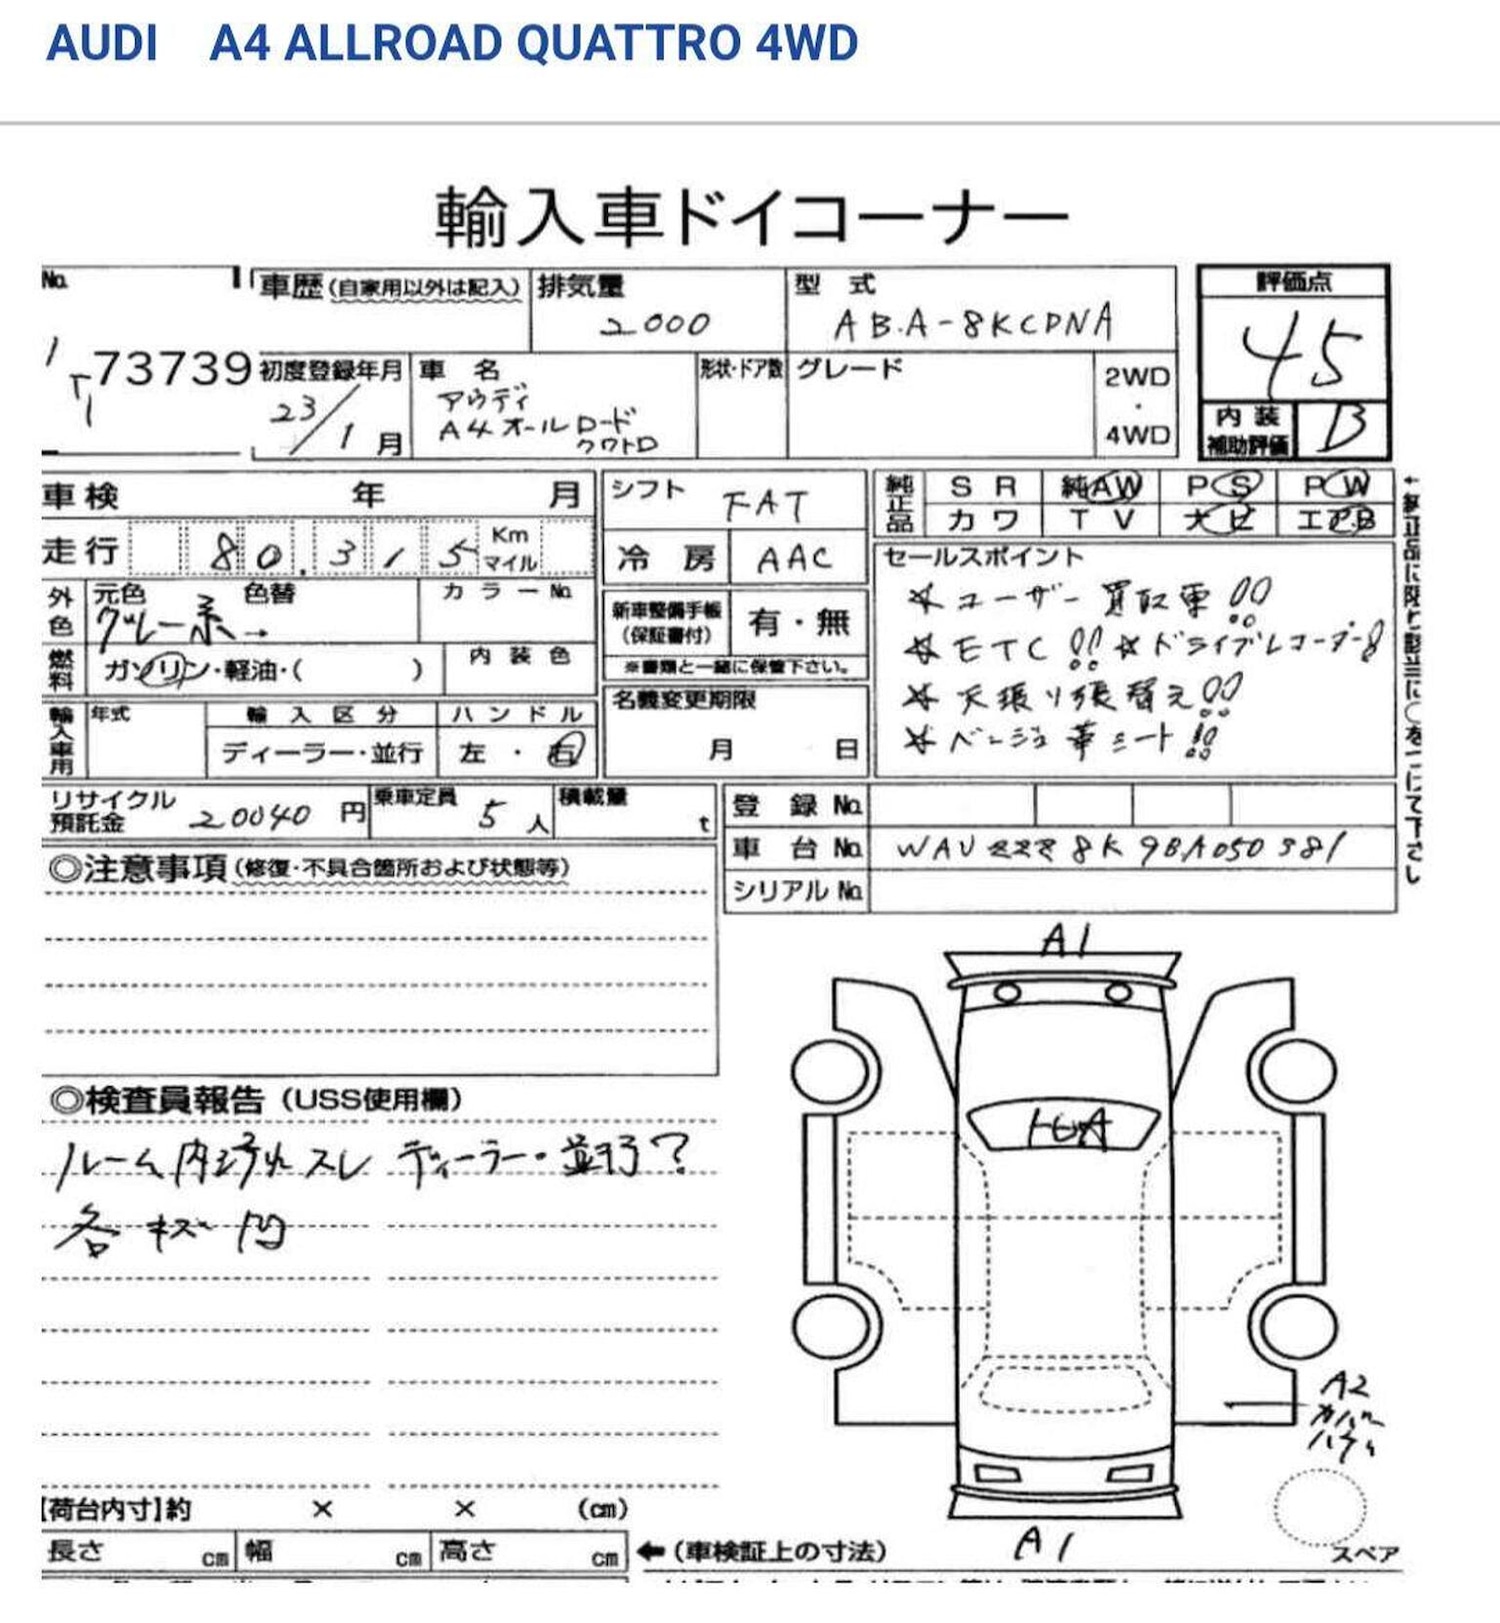 AUDI A4 ALLROAD QUATTRO 4WD
輸入車ドイコーナー
No.
73739
車歴(自家用以外は記入)
排気量
2000
型 式
ABA-8KCDNA
評価点
45
内装
補助評価
B
初度登録年月
23/1月
車 名
アウディ
A4オールロード
クワトロ
形状・ドア数
グレード
2WD
・
4WD
車検 年 月
走行 80.315 Km
マイル
シフト FAT
冷房 AAC
純正品
SR 純AW PS PW
カワ TV 大ビ エアB
外色
元色 色替 カラーNo.
グレー系→
燃料
ガソリン・軽油・( )
内装色
新車整備手帳
(保証書付)
有・無
※書類と一緒に保管下さい。
名義変更期限
月 日
セールスポイント
☆ユーザー買取車!!
☆ETC!! ☆ドライブレコーダー!!
☆天張り張替え!!
☆ベージュ革シート!!
輸入車用
年式
輸入区分
ディーラー・並行
ハンドル
左・右
リサイクル
預託金
20040円
乗車定員
5人
積載量
t
登録No.
車台No. WAUZZZ8K9BA050381
シリアルNo.
◎注意事項(修復・不具合箇所および状態等)
◎検査員報告(USS使用欄)
ルーム内汚れスレ ディーラー・並行?
各キズ凹
A1
A2
A1
スペア
【荷台内寸】約 × × (cm)
長さ cm 幅 cm 高さ cm ←(車検証上の寸法)